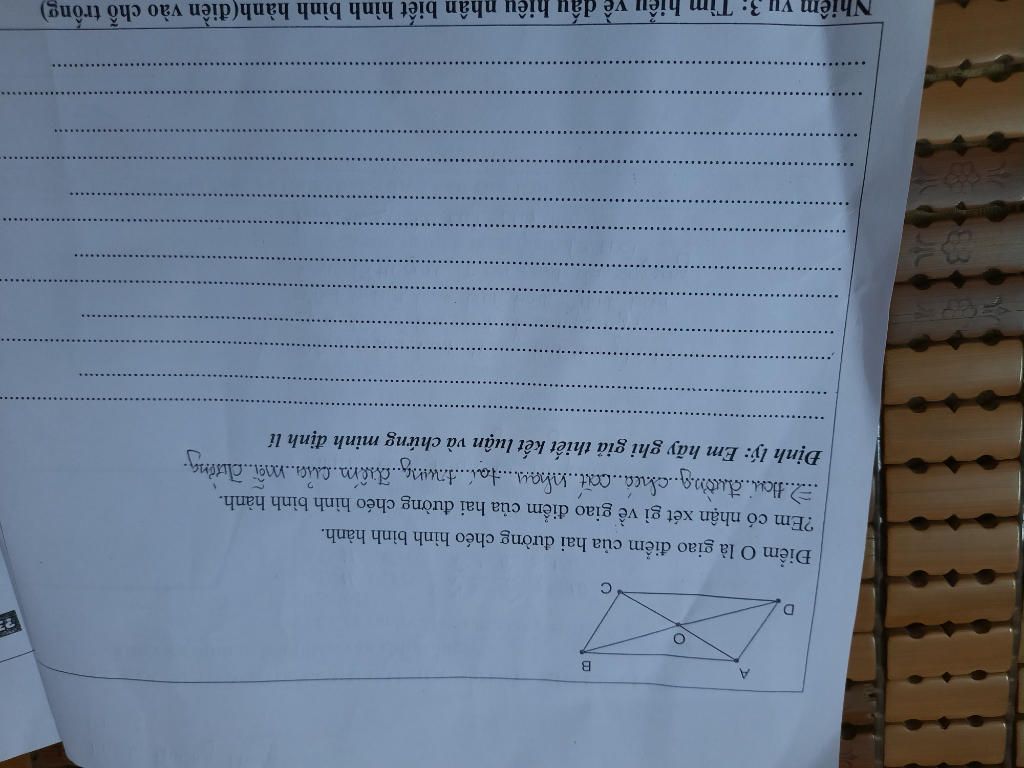 A
B
O
D
C
Điểm O là giao điểm của hai đường chéo hình bình hành.
?Em có nhận xét gì về giao điểm của hai đường chéo hình bình hành.
=> Hai đường chéo cắt nhau tại trung điểm của mỗi đường.
Định lý: Em hãy ghi giả thiết kết luận và chứng minh định lí
Nhiệm vụ 3: Tìm hiểu về dấu hiệu nhận biết hình bình hành(điền vào chỗ trống)